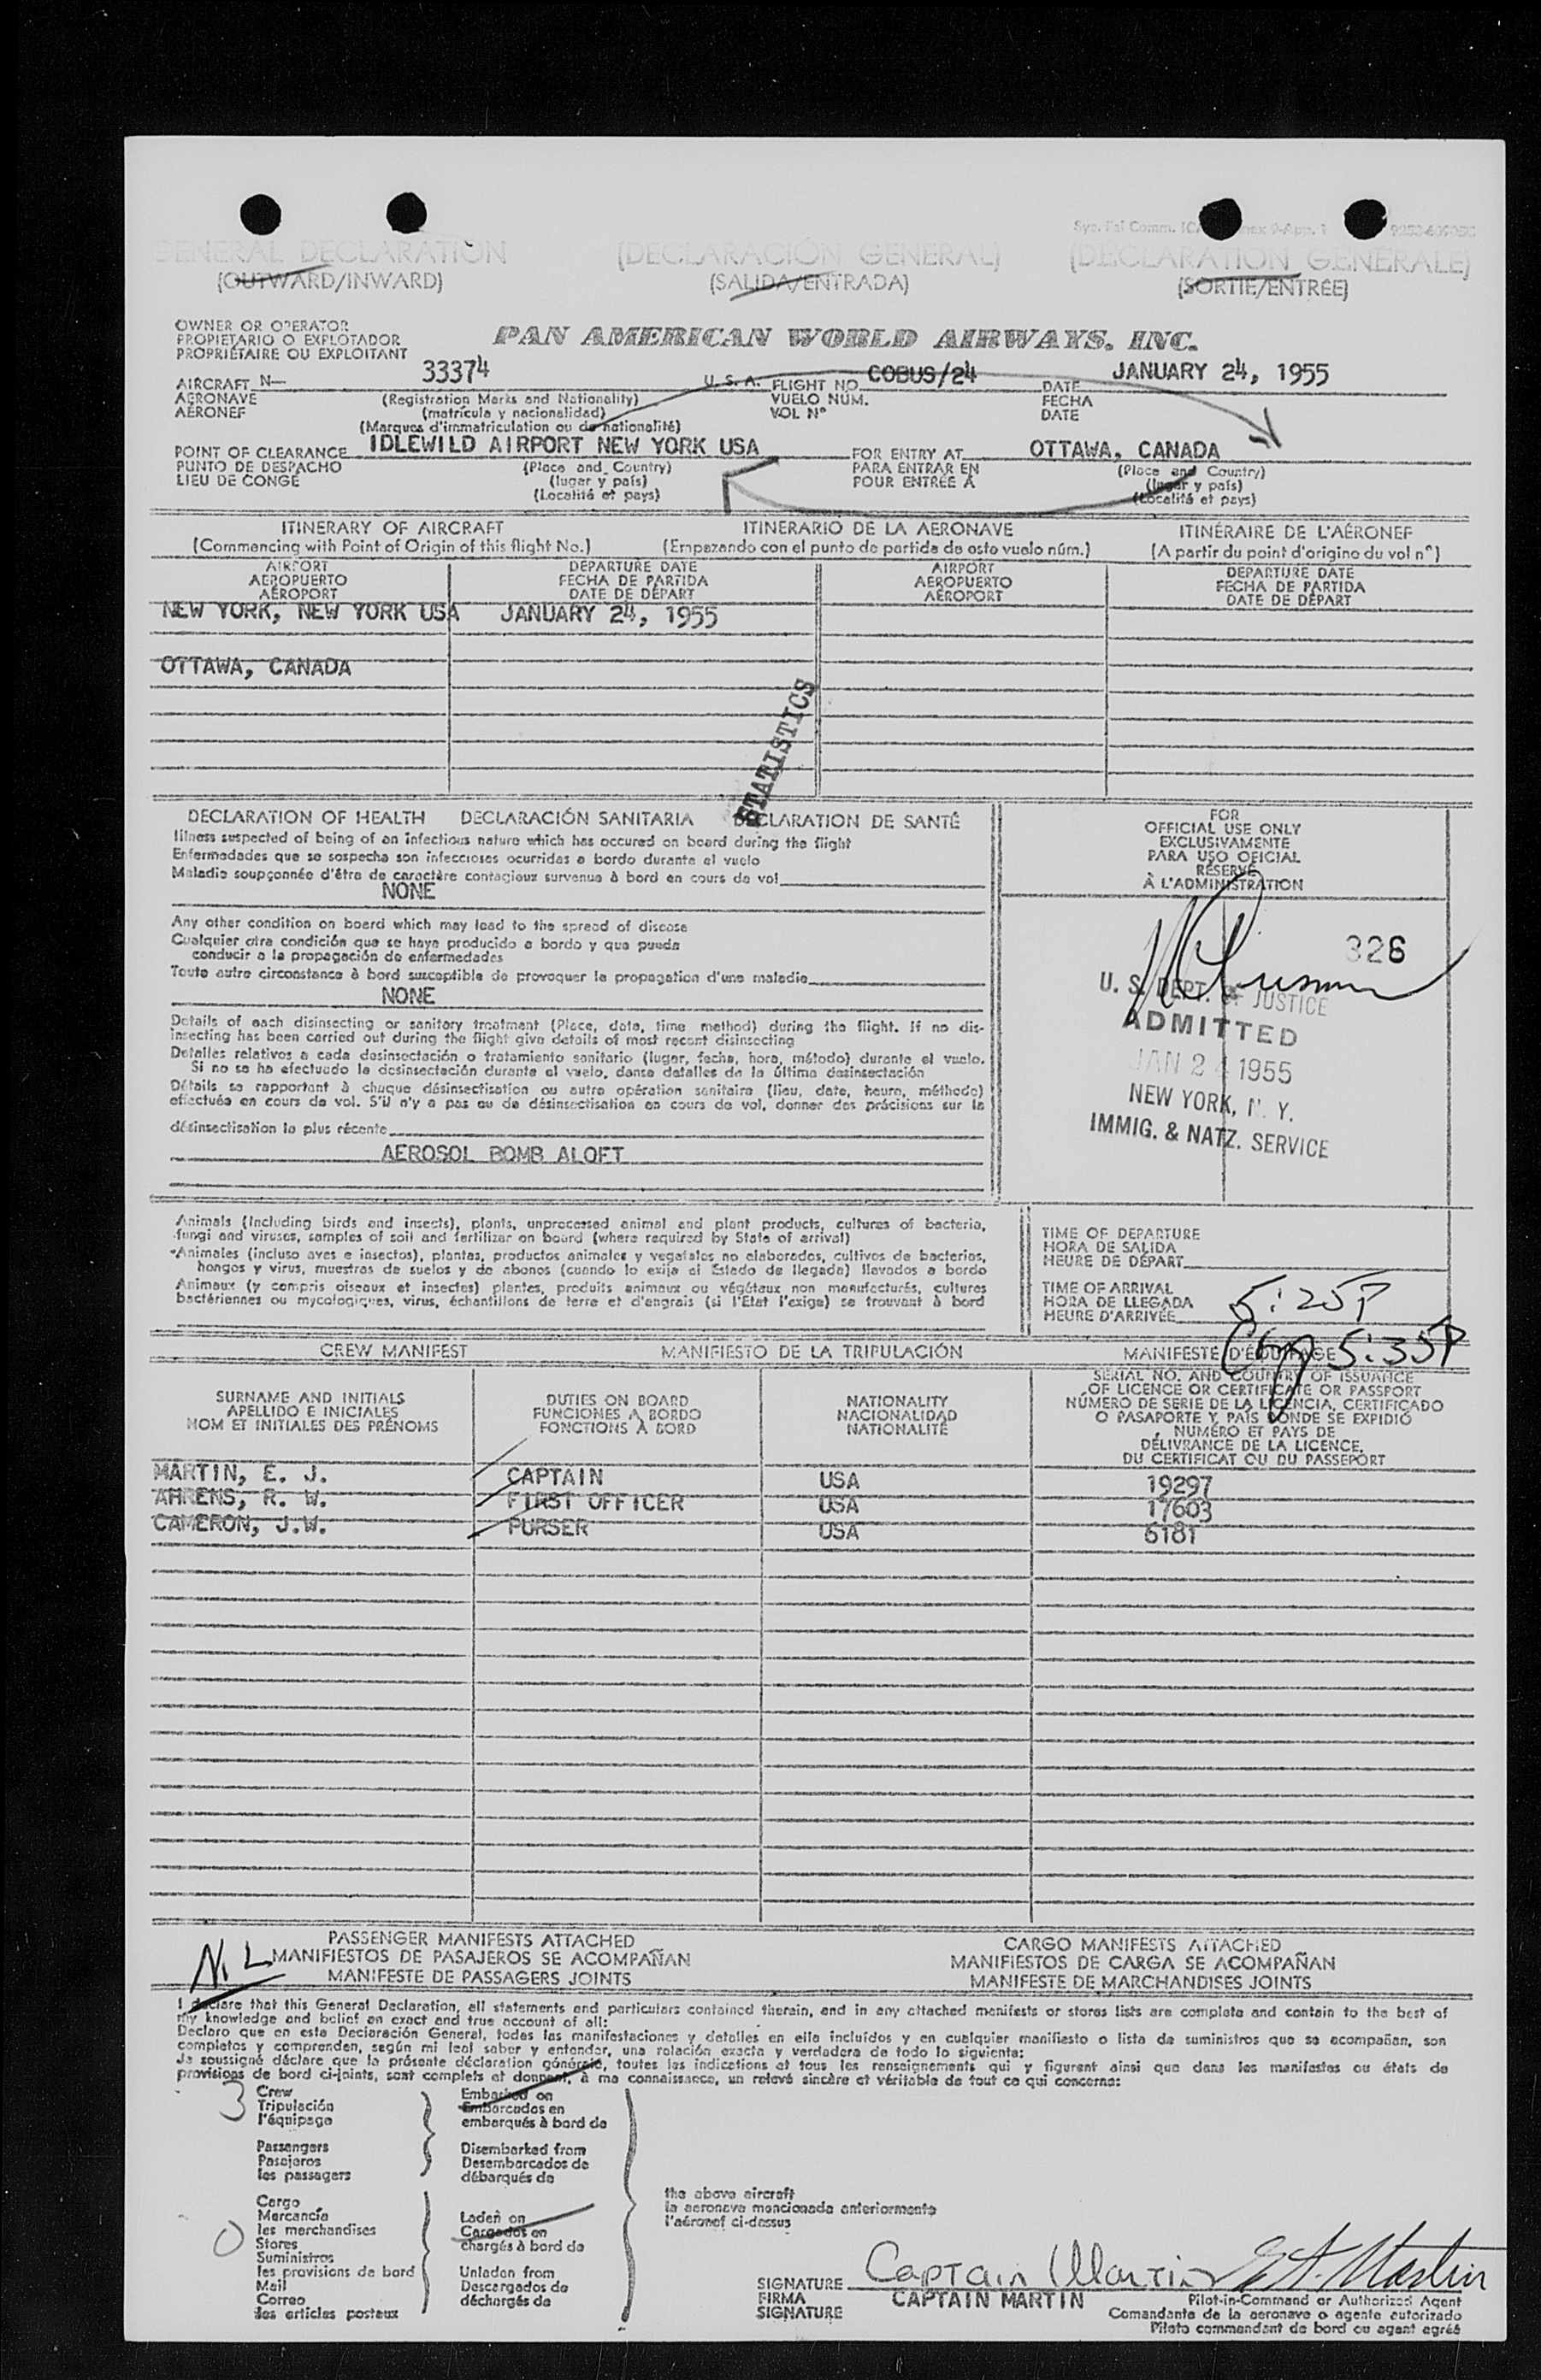 Sys. Fal Comm. IC
nex 9-App. 1
GENERAL DECLARATION (DECLARACIÓN GENERAL) (DECLARATION GENERALE)
(OUTWARD/INWARD) (SALIDA/ENTRADA) (SORTIE/ENTRÉE)
OWNER OR OPERATOR
PROPIETARIO O EXPLOTADOR
PROPRIÉTAIRE OU EXPLOITANT
PAN AMERICAN WORLD AIRWAYS, INC.
AIRCRAFT N— 33374 U. S. A. FLIGHT NO. COBUS/24 DATE JANUARY 24, 1955
AERONAVE (Registration Marks and Nationality) VUELO NÚM. FECHA
AÉRONEF (matrícula y nacionalidad) VOL Nº DATE
(Marques d'immatriculation ou de nationalité)
POINT OF CLEARANCE IDLEWILD AIRPORT NEW YORK USA FOR ENTRY AT OTTAWA, CANADA
PUNTO DE DESPACHO (Place and Country) PARA ENTRAR EN (Place and Country)
LIEU DE CONGÉ (lugar y país) POUR ENTRÉE À (lugar y país)
(Localité et pays) (Localité et pays)
ITINERARY OF AIRCRAFT ITINERARIO DE LA AERONAVE ITINÉRAIRE DE L'AÉRONEF
(Commencing with Point of Origin of this flight No.) (Empezando con el punto de partida de esto vuelo núm.) (A partir du point d'origine du vol nº)
AIRPORT DEPARTURE DATE AIRPORT DEPARTURE DATE
AEROPUERTO FECHA DE PARTIDA AEROPUERTO FECHA DE PARTIDA
AÉROPORT DATE DE DÉPART AÉROPORT DATE DE DÉPART
NEW YORK, NEW YORK USA JANUARY 24, 1955
OTTAWA, CANADA
STATISTICS
DECLARATION OF HEALTH DECLARACIÓN SANITARIA DÉCLARATION DE SANTÉ
Illness suspected of being of an infectious nature which has occured on board during the flight
Enfermedades que se sospecha son infecciosas ocurridas a bordo durante el vuelo
Maladie soupçonnée d'être de caractère contagieux survenue à bord en cours de vol
NONE
Any other condition on board which may lead to the spread of disease
Cualquier otra condición que se haya producido a bordo y que pueda
conducir a la propagación de enfermedades
Toute autre circonstance à bord susceptible de provoquer la propagation d'une maladie
NONE
Details of each disinsecting or sanitary treatment (Place, date, time method) during the flight. If no dis-
insecting has been carried out during the flight give details of most recent disinsecting
Detalles relativos a cada desinsectación o tratamiento sanitario (lugar, fecha, hora, método) durante el vuelo.
Si no se ha efectuado la desinsectación durante el vuelo, danse detalles de la última desinsectación
Détails se rapportant à chaque désinsectisation ou autre opération sanitaire (lieu, date, heure, méthode)
effectuée en cours de vol. S'il n'y a pas eu de désinsectisation en cours de vol, donner des précisions sur la
désinsectisation la plus récente
AEROSOL BOMB ALOFT
FOR
OFFICIAL USE ONLY
EXCLUSIVAMENTE
PARA USO OFICIAL
RÉSERVÉ
À L'ADMINISTRATION
326
U. S. DEPT. OF JUSTICE
ADMITTED
JAN 24 1955
NEW YORK, N. Y.
IMMIG. & NATZ. SERVICE
Animals (Including birds and insects), plants, unprocessed animal and plant products, cultures of bacteria,
fungi and viruses, samples of soil and fertilizer on board (where required by State of arrival)
Animales (incluso aves e insectos), plantas, productos animales y vegetales no elaborados, cultivos de bacterias,
hongos y virus, muestras de suelos y de abonos (cuando lo exija el Estado de llegada) llevados a bordo
Animaux (y compris oiseaux et insectes) plantes, produits animaux ou végétaux non manufacturés, cultures
bactériennes ou mycologiques, virus, échantillons de terre et d'engrais (si l'Etat l'exige) se trouvant à bord
TIME OF DEPARTURE
HORA DE SALIDA
HEURE DE DÉPART
TIME OF ARRIVAL
HORA DE LLEGADA
HEURE D'ARRIVÉE
5:25P
5:35P
CREW MANIFEST MANIFIESTO DE LA TRIPULACIÓN MANIFESTE D'ÉQUIPAGE
SURNAME AND INITIALS
APELLIDO E INICIALES
NOM ET INITIALES DES PRÉNOMS
DUTIES ON BOARD
FUNCIONES A BORDO
FONCTIONS À BORD
NATIONALITY
NACIONALIDAD
NATIONALITÉ
SERIAL NO. AND COUNTRY OF ISSUANCE
OF LICENCE OR CERTIFICATE OR PASSPORT
NÚMERO DE SERIE DE LA LICENCIA, CERTIFICADO
O PASAPORTE Y PAÍS DONDE SE EXPIDIÓ
NUMÉRO ET PAYS DE
DÉLIVRANCE DE LA LICENCE,
DU CERTIFICAT OU DU PASSEPORT
MARTIN, E. J. CAPTAIN USA 19297
AHRENS, R. W. FIRST OFFICER USA 17603
CAMERON, J.W. PURSER USA 6181
NIL
PASSENGER MANIFESTS ATTACHED
MANIFIESTOS DE PASAJEROS SE ACOMPAÑAN
MANIFESTE DE PASSAGERS JOINTS
CARGO MANIFESTS ATTACHED
MANIFIESTOS DE CARGA SE ACOMPAÑAN
MANIFESTE DE MARCHANDISES JOINTS
I declare that this General Declaration, all statements and particulars contained therein, and in any attached manifests or stores lists are complete and contain to the best of
my knowledge and belief an exact and true account of all:
Declaro que en esta Declaración General, todas las manifestaciones y detalles en ella incluídos y en cualquier manifiesto o lista de suministros que se acompañan, son
completos y comprenden, según mi leal saber y entender, una relación exacta y verdadera de todo lo siguiente:
Je soussigné déclare que la présente déclaration générale, toutes les indications et tous les renseignements qui y figurent ainsi que dans les manifestes ou états de
provisions de bord ci-joints, sont complets et donnent, à ma connaissance, un relevé sincère et véritable de tout ce qui concerne:
3
Crew
Tripulación
l'équipage
Passengers
Pasajeros
les passagers
Cargo
Mercancía
les marchandises
0
Stores
Suministros
les provisions de bord
Mail
Correo
les articles postaux
Embarked on
Embarcados en
embarqués à bord de
Disembarked from
Desembarcados de
débarqués de
Laden on
Cargados en
chargés à bord de
Unladen from
Descargados de
déchargés de
the above aircraft
la aeronave mencionada anteriormente
l'aéronef ci-dessus
SIGNATURE Captain Martin
FIRMA CAPTAIN MARTIN
SIGNATURE
Pilot-in-Command or Authorized Agent
Comandante de la aeronave o agente autorizado
Pilote commandant de bord ou agent agréé